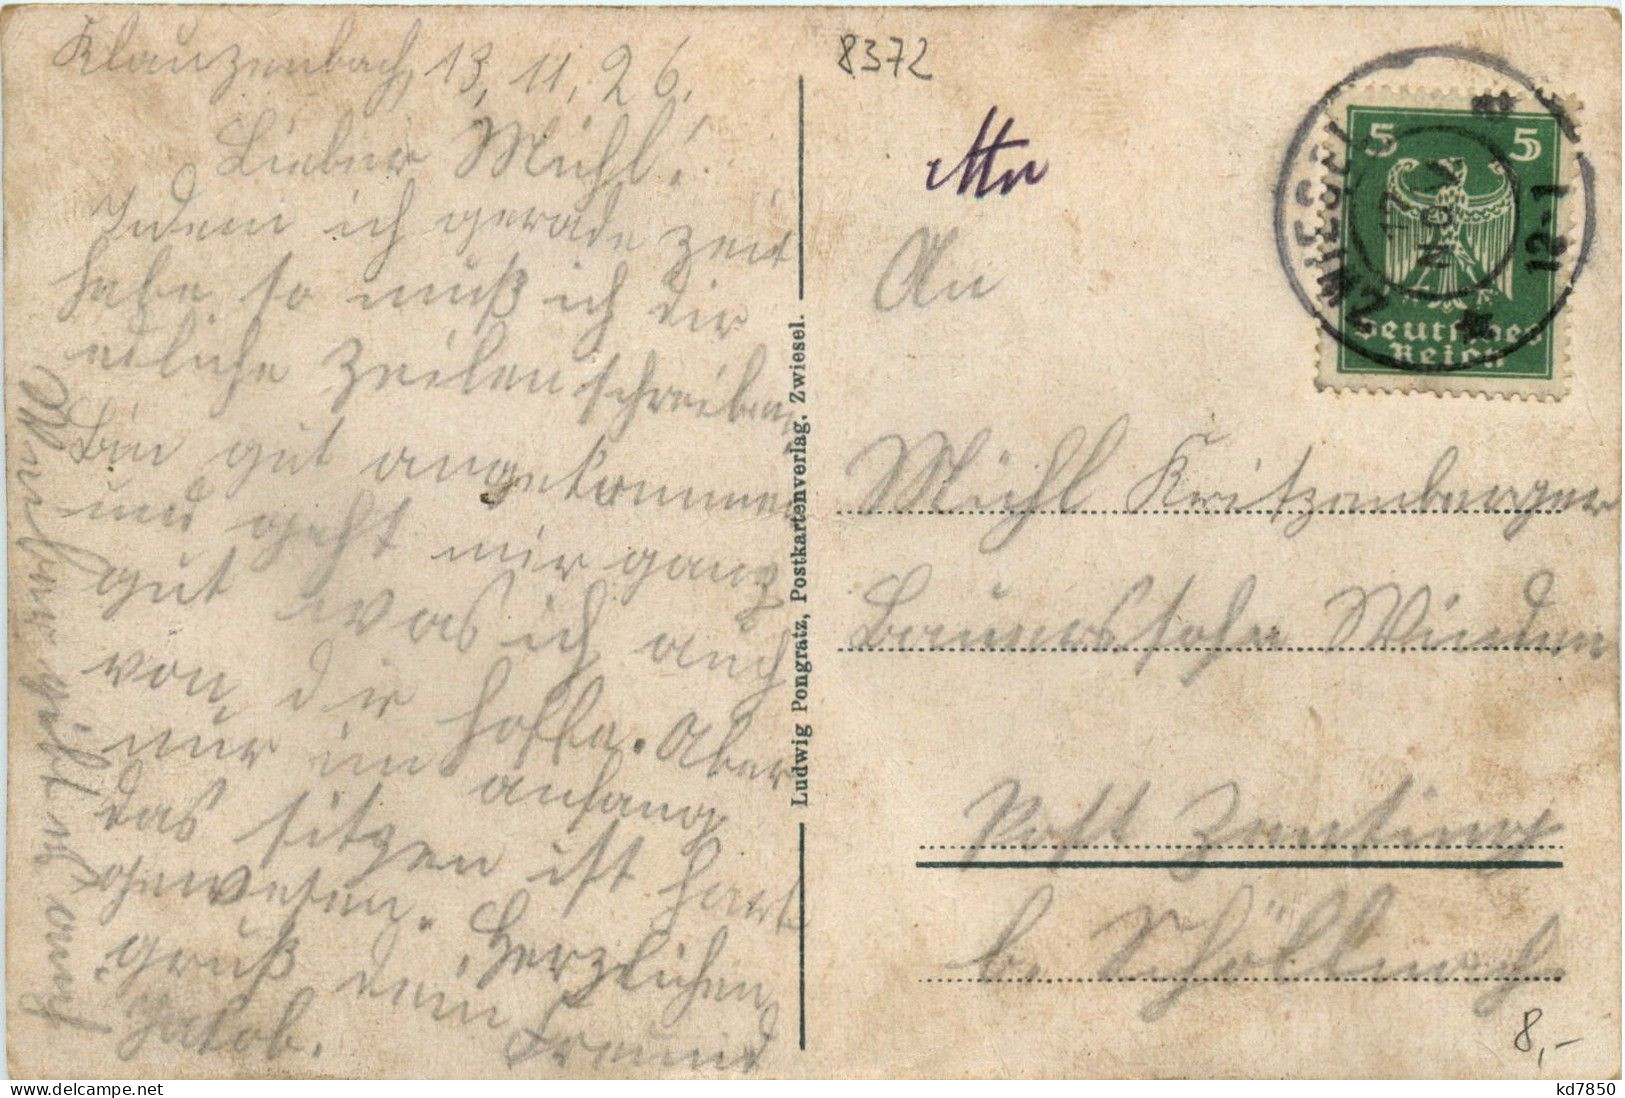 Klauzenbach, 13. 11. 26.
Lieber Michl!
Indem ich gerade zeit
habe, so muß ich dir
etliche Zeilen schreiben,
bin gut angekommen
und geht mir ganz
gut was ich auch
von dir hoffe. Aber
nur im anfang
das sitzen ist hart
gewesen. Herzlichen
gruß dein Freund
Jakob.
gibt es
Ludwig Pongratz, Postkartenverlag, Zwiesel.
8372
ZWIESEL
17
NOV
12-1
5 5
Deutsches
Reich
An
Michl Kritzenberger
Bauerssohn Winden
Post Zenting
b. Schöllnach
8,-
delcampe.net
kd7850